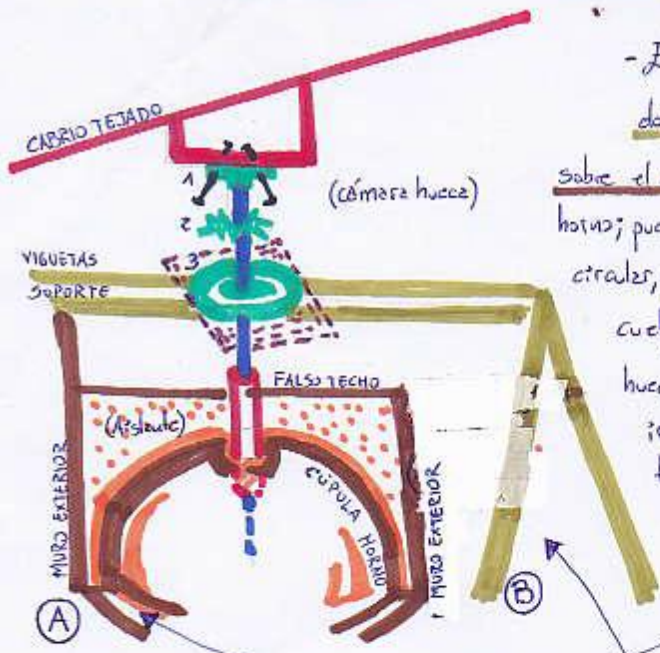 CABRIO TEJADO
1
(cámara hueca)
2
3
VIGUETAS
SOPORTE
FALSO TECHO
(Aislante)
MURO EXTERIOR
CÚPULA HORNO
MURO EXTERIOR
A
B
sobre el
horno;
circular,